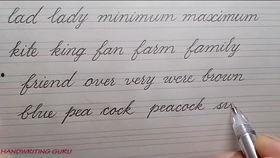 lad lady minimum maximum
kite king fan farm family
friend over very were brown
blue pea cock peacock
HANDWRITING GURU